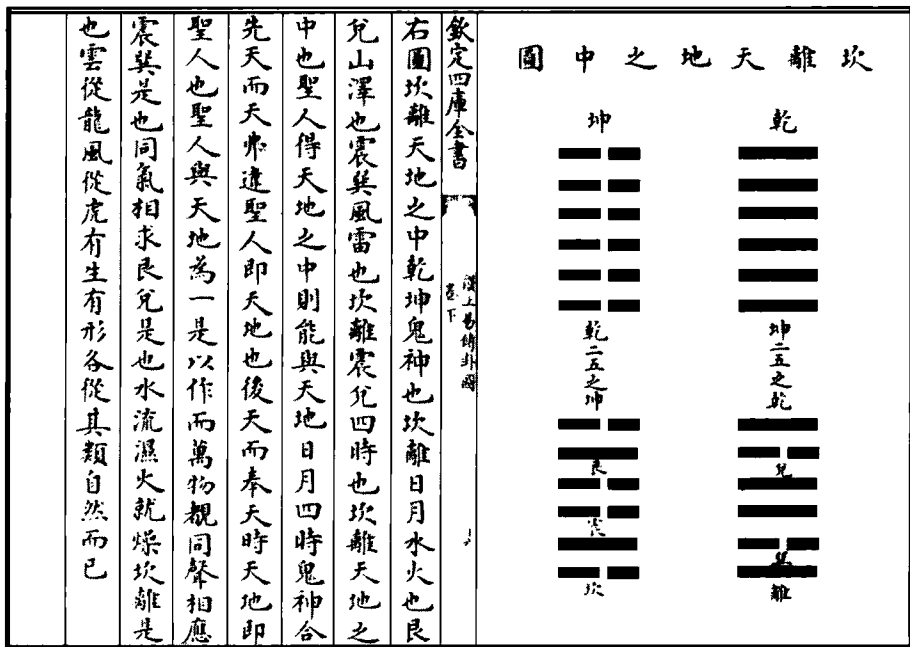 坎離天地之中圖
乾
坤
坤二五之乾
乾二五之坤
兌
巽
離
艮
震
坎
欽定四庫全書
漢上易傳卦圖
卷下
右圖坎離天地之中乾坤鬼神也坎離日月水火也艮
兌山澤也震巽風雷也坎離震兌四時也坎離天地之
中也聖人得天地之中則能與天地日月四時鬼神合
先天而天弗違聖人即天地也後天而奉天時天地即
聖人也聖人與天地為一是以作而萬物覩同聲相應
震巽是也同氣相求艮兌是也水流濕火就燥坎離是
也雲從龍風從虎有生有形各從其類自然而已